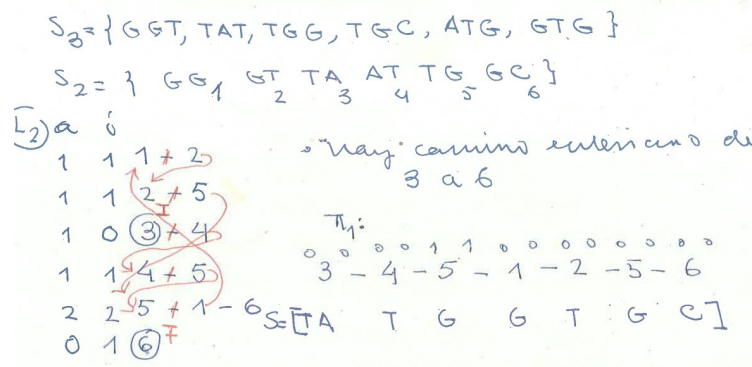 S3 = { GGT, TAT, TGG, TGC, ATG, GTG }
S2 = { GG1 GT2 TA3 AT4 TG5 GC6 }
L2) a i
1 1 1 + 2
1 1 2 + 5
I
1 0 3 + 4
1 1 4 + 5
2 2 5 + 1 - 6
0 1 6 F
• Hay camino euleriano de
3 a 6
π1:
0 0 0 0 1 1 0 0 0 0 0 0 0
3 - 4 - 5 - 1 - 2 - 5 - 6
S=[TA T G G T G C]